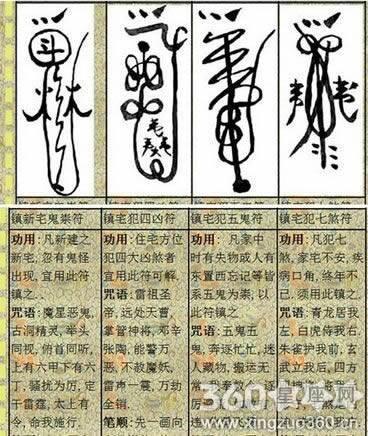 镇新宅鬼祟符
功用:凡新建之
新宅,忽有鬼怪
出现,宜用此符
镇之.
咒语:魔星恶鬼,
古洞精灵,举头
同视,俯首同听,
上有六甲下有六
丁,骚扰为厉,定
干雷霆,太上有
令,命我施行.
镇宅犯四凶符
功用:住宅方位
犯四大凶煞者
宜用此符可解.
咒语:雷祖圣
帝,远处天曹,
掌管神将,邓辛
张陶,能警万
恶,不赦魔妖,
雷声一震,万劫
全销.
笔顺:先一画向
镇宅犯五鬼符
功用:凡家中
时有失物或人有
东置西忘记等皆
系五鬼为祟,以
此符镇之.
咒语:五鬼五
鬼,奔逐忙忙,迷
人藏物,搬运无
镇宅犯七煞符
功用:凡犯七
煞,家宅不安,疾
病口角,终年不
已.须用此镇之.
咒语:青龙居我
左,白虎侍我右,
朱雀护我前,玄
武立我后,四方
360星座网
www.xingzuo360.cn